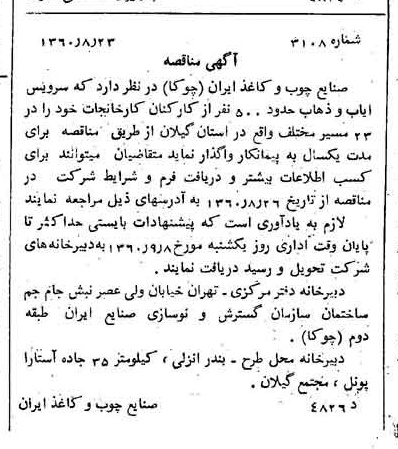 شماره ۳۱۰۸ ۱۳۶۰/۸/۲۳
آگهی مناقصه
صنایع چوب و کاغذ ایران (چوکا) در نظر دارد که سرویس
ایاب و ذهاب حدود ۵۰۰ نفر از کارکنان کارخانجات خود را در
۲۳ مسیر مختلف واقع در استان گیلان از طریق مناقصه برای
مدت یکسال به پیمانکار واگذار نماید متقاضیان میتوانند برای
کسب اطلاعات بیشتر و دریافت فرم و شرایط شرکت در
مناقصه از تاریخ ۱۳۶۰/۸/۲۶ به آدرسهای ذیل مراجعه نمایند
لازم به یادآوری است که پیشنهادات بایستی حداکثر تا
پایان وقت اداری روز یکشنبه مورخ ۱۳۶۰/۹/۸ به دبیرخانه‌های
شرکت تحویل و رسید دریافت نمایند .
دبیرخانه دفتر مرکزی ـ تهران خیابان ولی عصر نبش جام جم
ساختمان سازمان گسترش و نوسازی صنایع ایران طبقه
دوم (چوکا) .
دبیرخانه محل طرح ـ بندر انزلی ، کیلومتر ۳۵ جاده آستارا
پونل ، مجتمع گیلان .
د ۴۸۲۶ صنایع چوب و کاغذ ایران